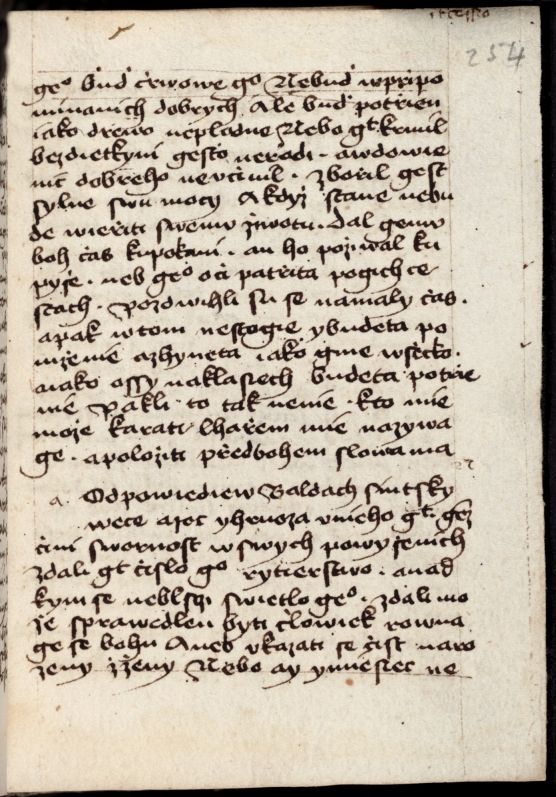 254
geo bud crwowe go Nebud wpripo
minanich dobrych Ale bud potrien
iako drewo neplodne Nebo gt krmil
bezdietkyni gesto nerodi . awdowie
nic dobreho nevcinil . zboril gest
sylne swu mocy A kdyz stane nebu
de wieriti swemu ziwotu . dal gemu
boh cas kupokani . an ho pozywal ku
pyse . neb geo oci patrita pogich ce
stach . Pozdwihli su se namaly cas .
apak wtom nestogie ybudeta po
nizenie azhyneta iako gine wsecko .
aiako ossy naklasiech budeta potrie
nie Pakli to tak nenie . kto mie
moze karati lharem mie nazywa
ge . apoloziti predbohem slowa ma
a . Odpowiediew Baldach suitsky
wece a moc yhruoza vnieho gt . gez
cini swornost wswych powysenich
zdali gt cislo go rytierstwo . anad
kym se neblsti swietlo geo . zdali mo
ze sprawedlen byti clowiek rowna
ge se bohu Aneb vkazati se cist naro
zeny zzeny Nebo ay ymiesiec ne